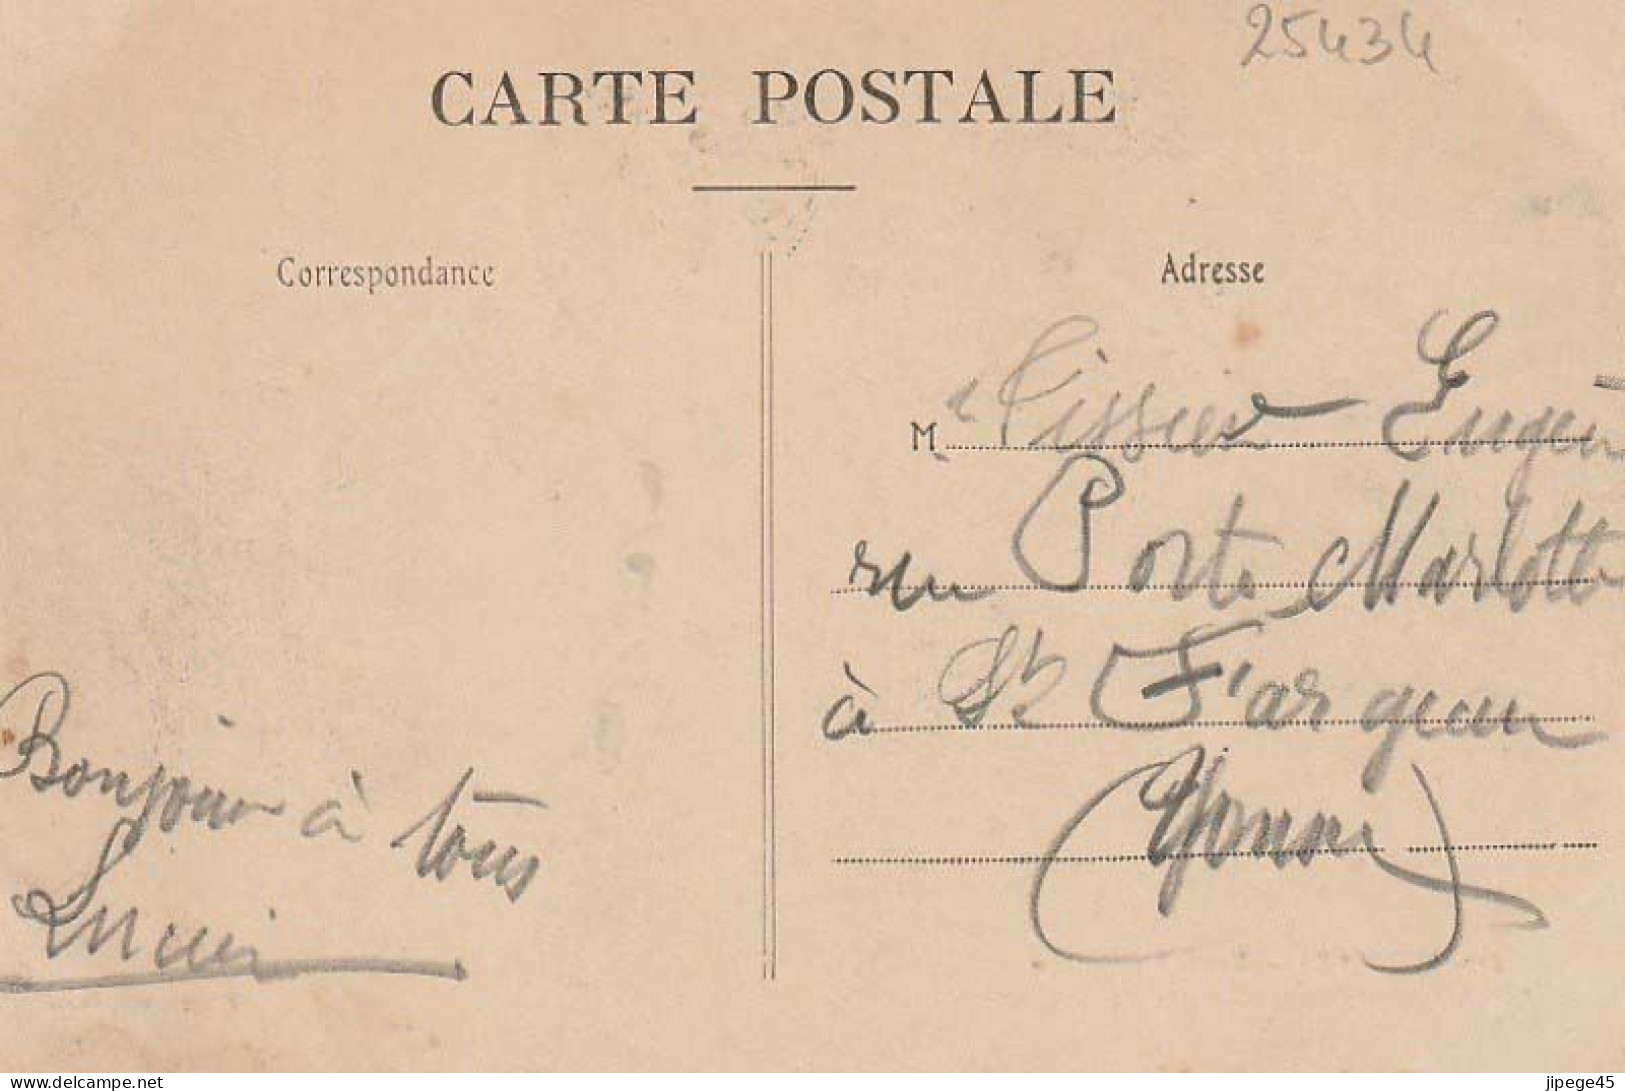 25434
CARTE POSTALE
Correspondance
Adresse
M Tissier Eugèn
rue Porte Marlotte
à St Fargeau
(Yonne)
Bonjour à tous
Lucien
www.delcampe.net
jipege45